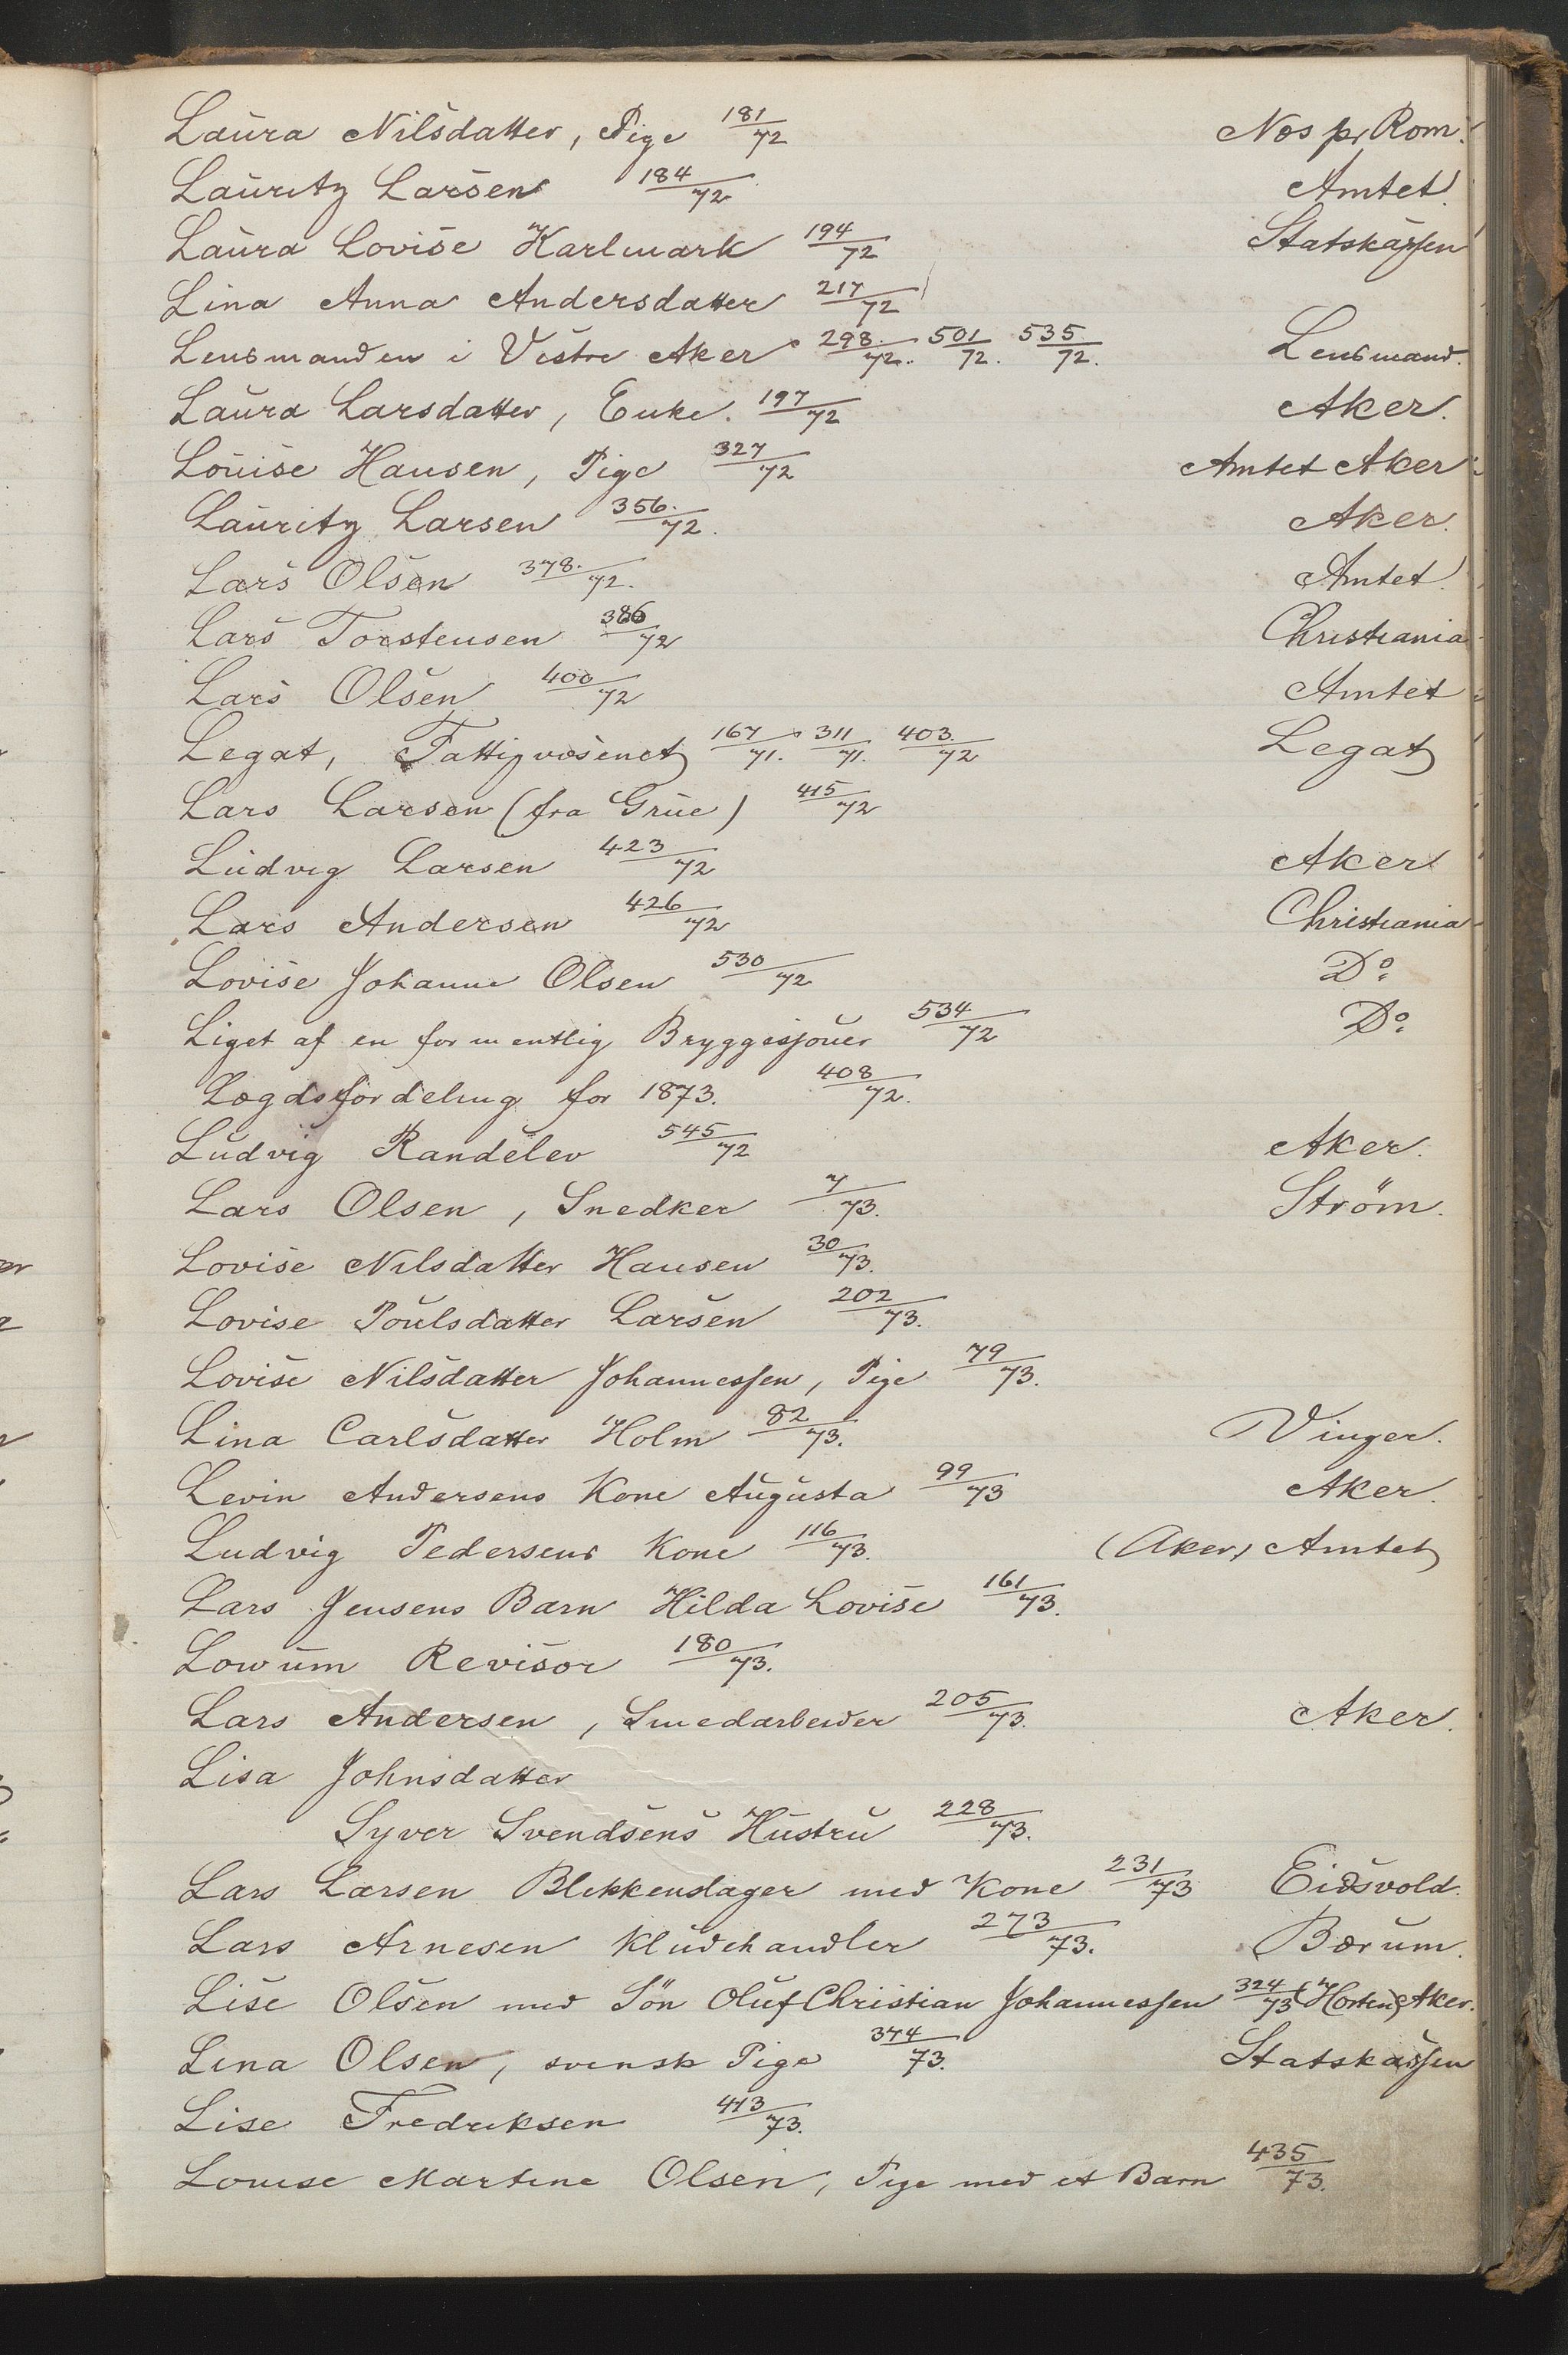 Laura Nilsdatter, Pige 181/72 Nes pr Rom.
Lauritz Larsen 184/72 Amtet.
Laura Lovise Karlmark 194/72 Statskassen
Lina Anna Andersdatter 217/72
Lensmanden i Vestre Aker 298/72. 501/72. 535/72. Lensmand.
Laura Larsdatter, Enke. 197/72 Aker.
Louise Hansen, Pige 327/72 Amtet Aker
Lauritz Larsen 356/72. Aker.
Lars Olsen 378/72. Amtet
Lars Torstensen 386/72 Christiania
Lars Olsen 400/72 Amtet
Legat, Fattigvæsenet 167/71. 311/71. 403/72 Legat
Lars Larsen (fra Grue) 415/72
Ludvig Larsen 423/72 Aker
Lars Andersen 426/72 Christiania
Lovise Johanne Olsen 530/72 Do
Liget af en formentlig Bryggesjouer 534/72 Do
Lægdsfordeling for 1873. 408/72.
Ludvig Randelev 545/72 Aker.
Lars Olsen, Snedker 7/73. Ström.
Lovise Nilsdatter Hansen 30/73.
Lovise Poulsdatter Larsen 202/73.
Lovise Nilsdatter Johannessen, Pige 79/73.
Lina Carlsdatter Holm 82/73. Vinger.
Levin Andersens Kone Augusta 99/73 Aker.
Ludvig Pedersens Kone 116/73. (Aker) Amtet
Lars Jensens Barn Hilda Lovise 161/73.
Lowum Revisor 180/73.
Lars Andersen, Smedarbeider 205/73. Aker.
Lisa Johnsdatter
Syver Svendsens Hustru 228/73.
Lars Larsen Blikkenslager med Kone 231/73 Eidsvold.
Lars Arnesen Kludehandler 273/73. Bærum.
Lise Olsen med Sön Oluf Christian Johannessen 324/73 (Horten) Aker.
Lina Olsen, svensk Pige 374/73. Statskassen
Lise Fredriksen 413/73.
Louise Martine Olsen, Pige med et Barn 435/73.